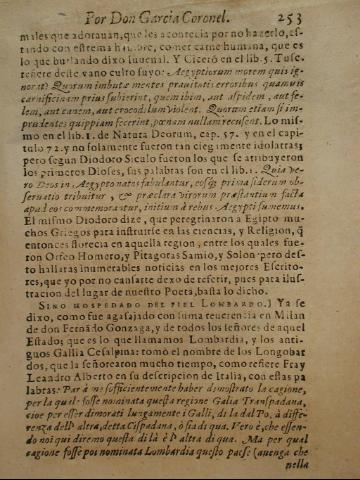 Por Don Garcia Coronel. 253
males que adorauan, que les acontecia por no hazerlo, es-
tando con estrema hambre, comer carne humana, que es
lo que burlando dixo Iuuenal. Y Ciceró en el lib. 5. Tusc.
refiere deste vano culto suyo: Aegyptiorum morem quis ig-
norat? Quorum imbutæ mentes prauitatis erroribus quamuis
carnificinam prius subierint, quem ibin, aut aspidem, aut fe-
lem, aut canem, aut crocodilum violent. Quorum etiam si im-
prudentes quippiam fecerint, pœnam nullam recusent. Lo mis-
mo en el lib. 1. de Natura Deorum, cap. 57. y en el capi-
tulo 72. y no solamente fueron tan ciegamente idolatras;
pero segun Diodoro Siculo fueron los que se atribuyeron
los primeros Dioses, sus palabras son en el lib. 1. Quia ve-
ro Deos in Aegypto natos fabulantur, eosq; prima siderum ob-
seruatio tribuitur, & præclara virorum præstantium facta
apud eos commemorantur, initium à rebus Aegypti sumemus.
El mismo Diodoro dize, que peregrinaron a Egipto mu-
chos Griegos para instruirse en las ciencias, y Religion, q̃
entonces florecia en aquella region, entre los quales fue-
ron Orfeo Homero, y Pitagoras Samio, y Solon: pero des-
to hallaràs inumerables noticias en los mejores Escrito-
res, que yo por no cansarte dexo de referir, pues para ilus-
tracion del lugar de nuestro Poeta, basta lo dicho.
SINO HOSPEDADO DEL FIEL LOMBARDO.) Ya se
dixo, como fue agasajado con suma reuerencia en Milan
de don Fernãdo Gonzaga, y de todos los señores de aquel
Estado; que es lo que llamamos Lombardia, y los anti-
guos Gallia Cesalpina: tomò el nombre de los Longobar
dos, que la señorearon mucho tiempo, como refiere Fray
Leandro Alberto en su descripcion de Italia, con estas pa
labras: Par à me sofficientemente haber dimostrato la cagione,
per la qual fosse nominata questa regione Galia Transpadana,
cioe per esser dimorati lungamente i Galli, di la dal Po, à diffe-
renza dell' altra, detta Cispadana, ò sia di qua. Vero è, che essen-
do noi qui diremo questa di là è l' altra di qua. Ma per qual
cagione fosse poi nominata Lombardia questo paese (auenga che
nella